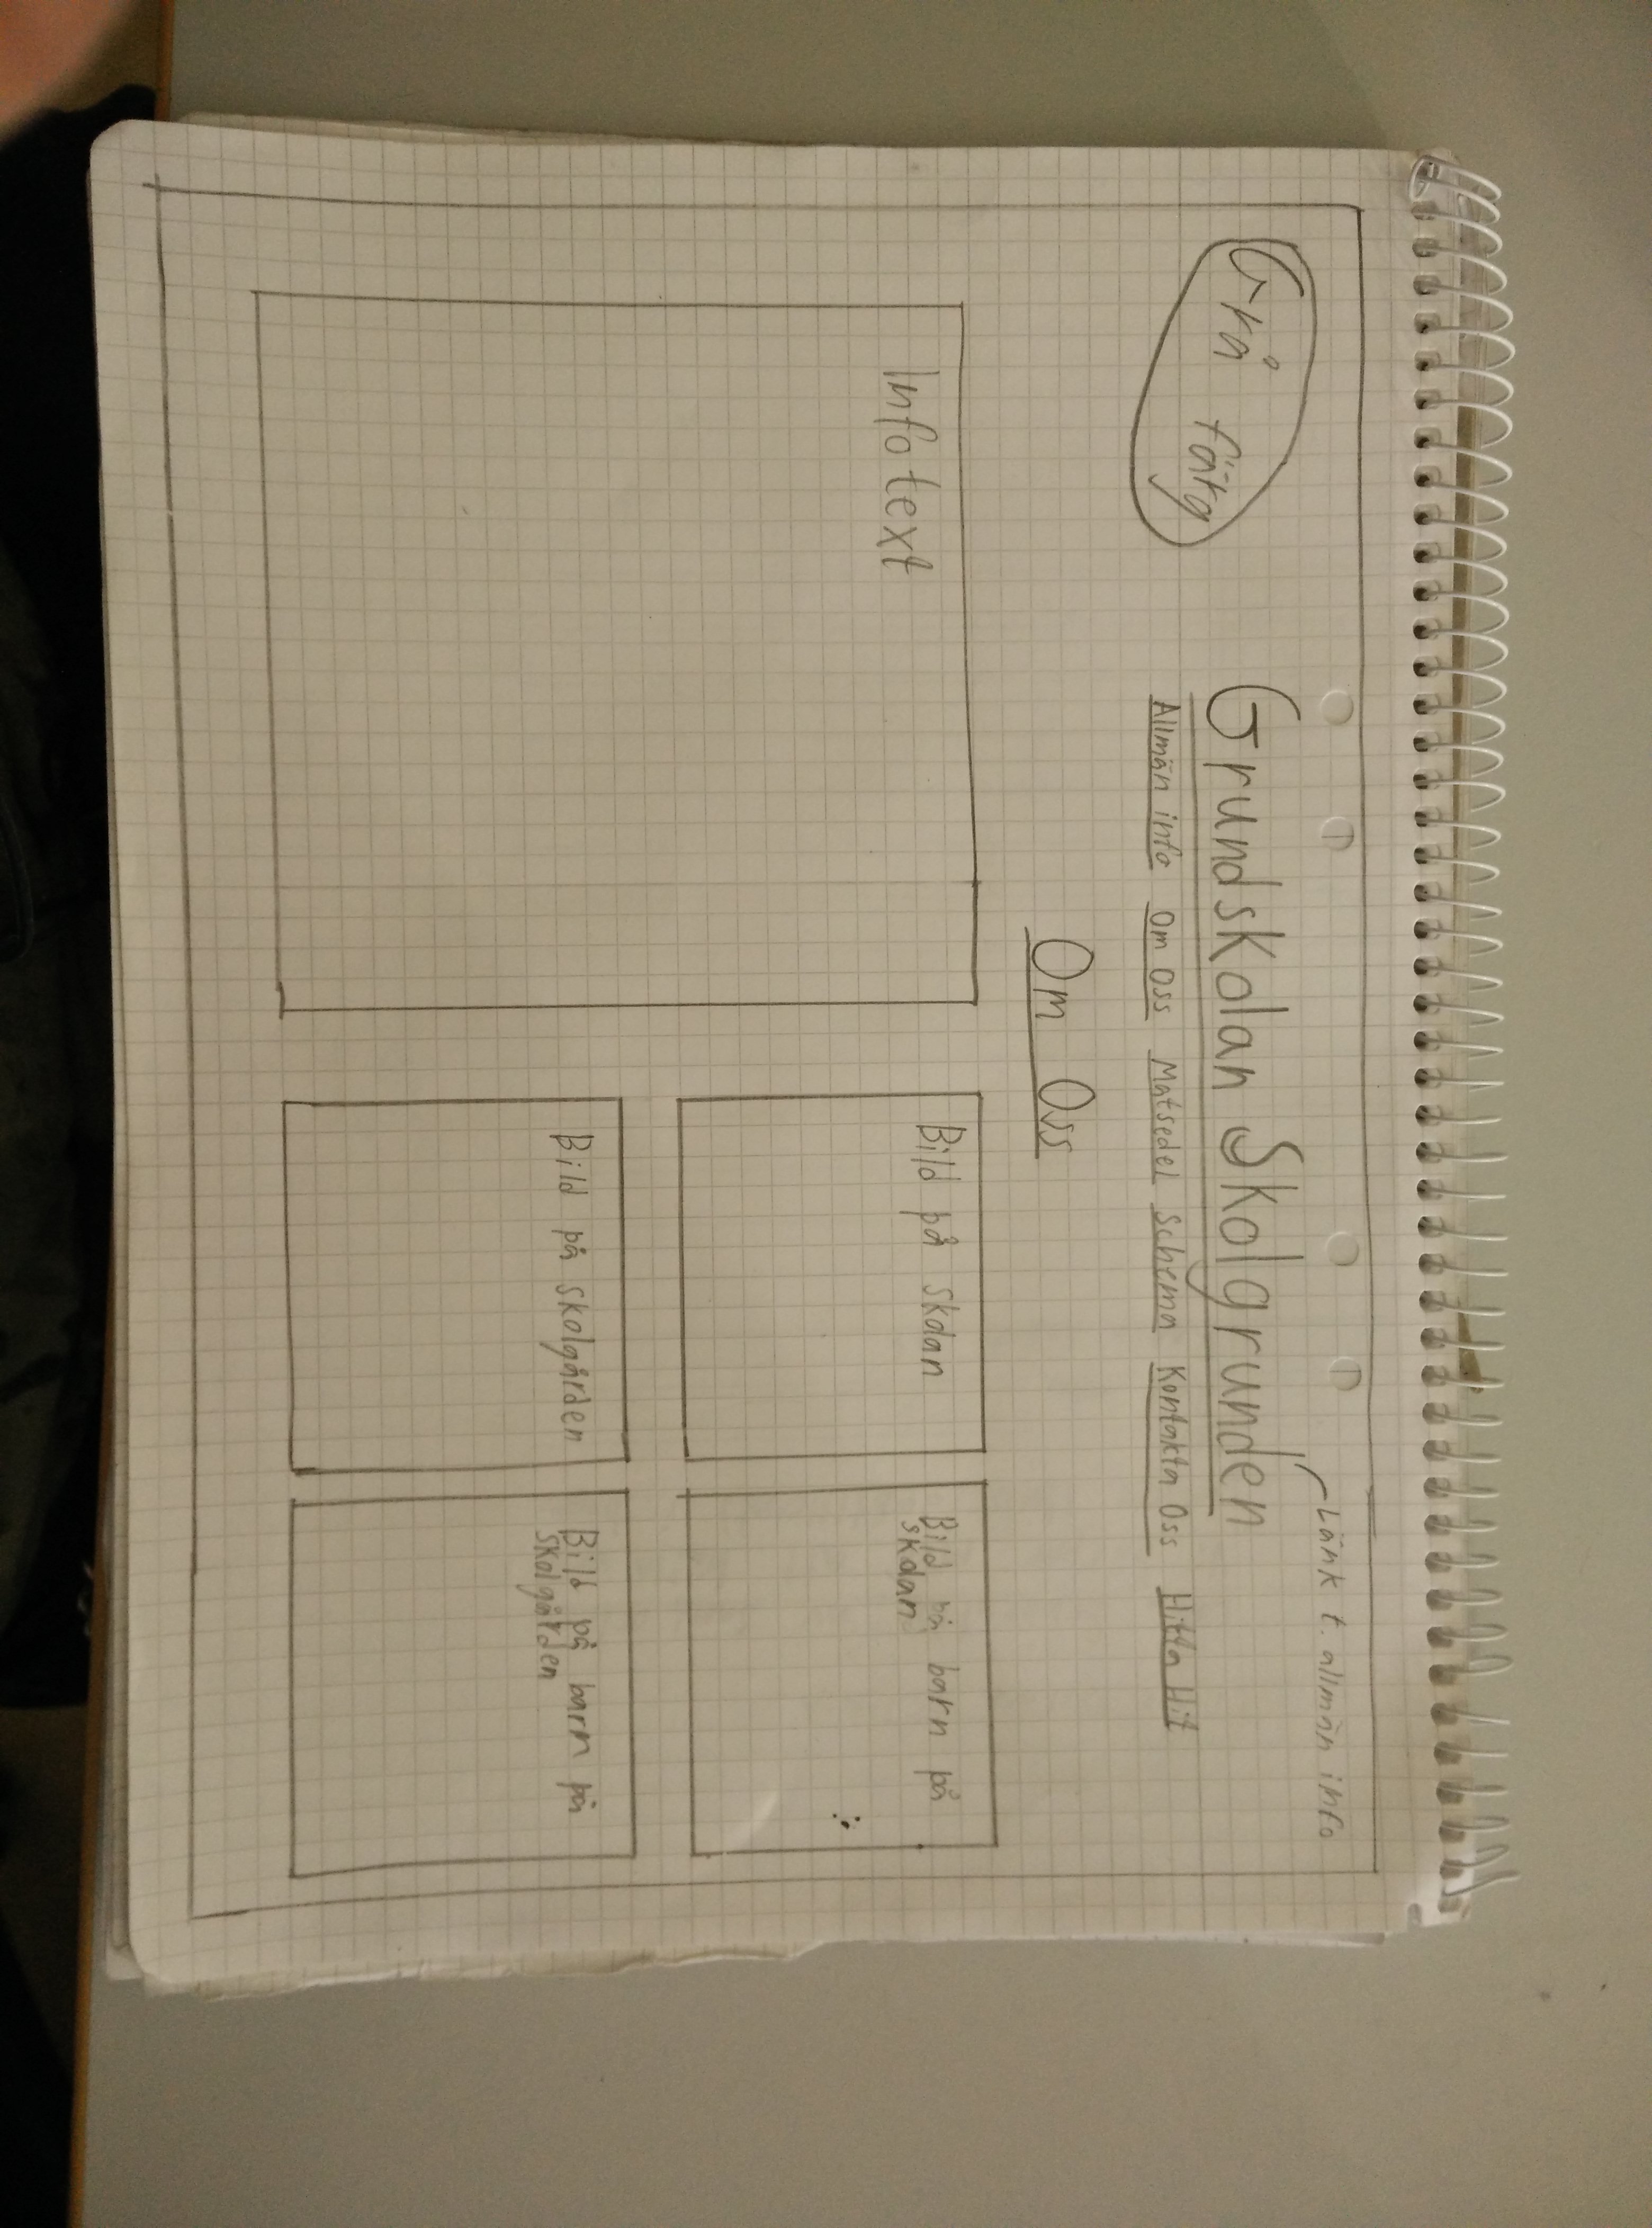 Länk t. allmän info
Grå färg
Grundskolan Skolgrunden
Allmän info Om Oss Matsedel Schema Kontakta Oss Hitta Hit
Om Oss
Infotext
Bild på skolan
Bild på barn på
skolan
Bild på skolgården
Bild på barn på
skolgården